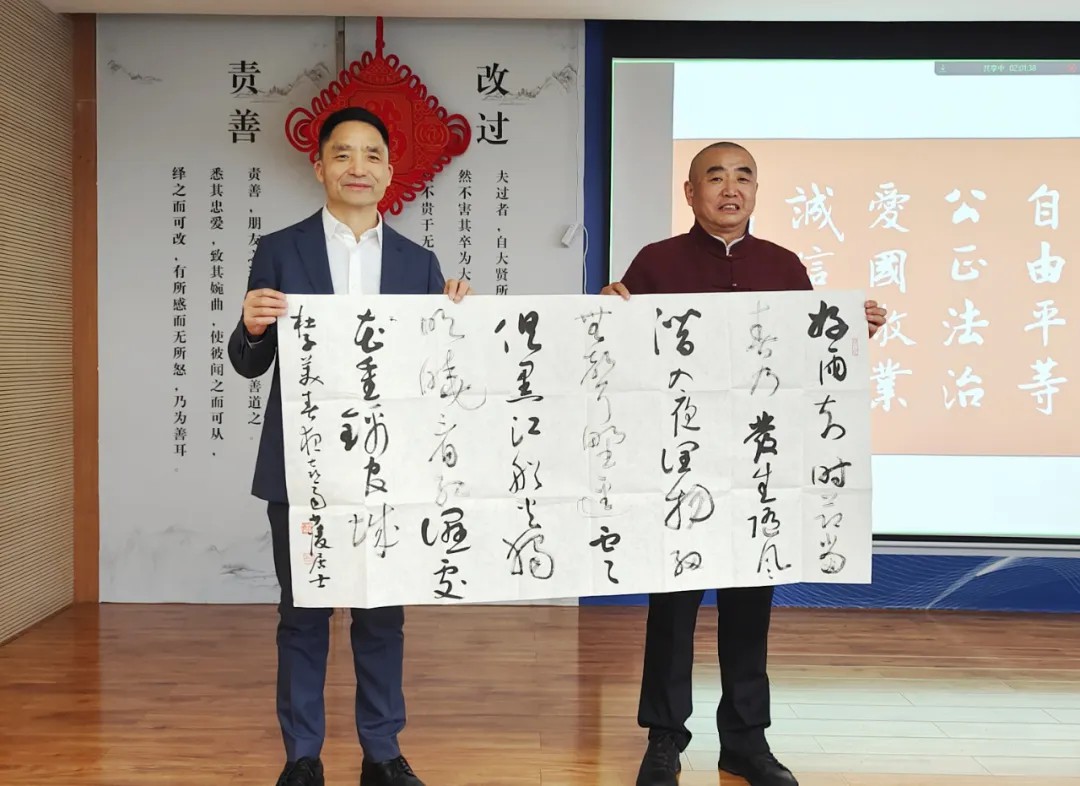 责善
责善，朋友
善道之。
悉其忠爱，致其婉曲，使彼闻之而可从，
绎之而可改，有所感而无所怒，乃为善耳。
改过
夫过者，自大贤所
然不害其卒为大
不贵于无
共享中 02:01:18
自由平等
公正法治
愛國敬業
誠信
好雨知时節當
春乃發生随风
潜入夜润物细
無聲野逕雲
俱黑江船火獨
明曉看红濕處
花重錦官城
杜子美春夜喜雨 居士